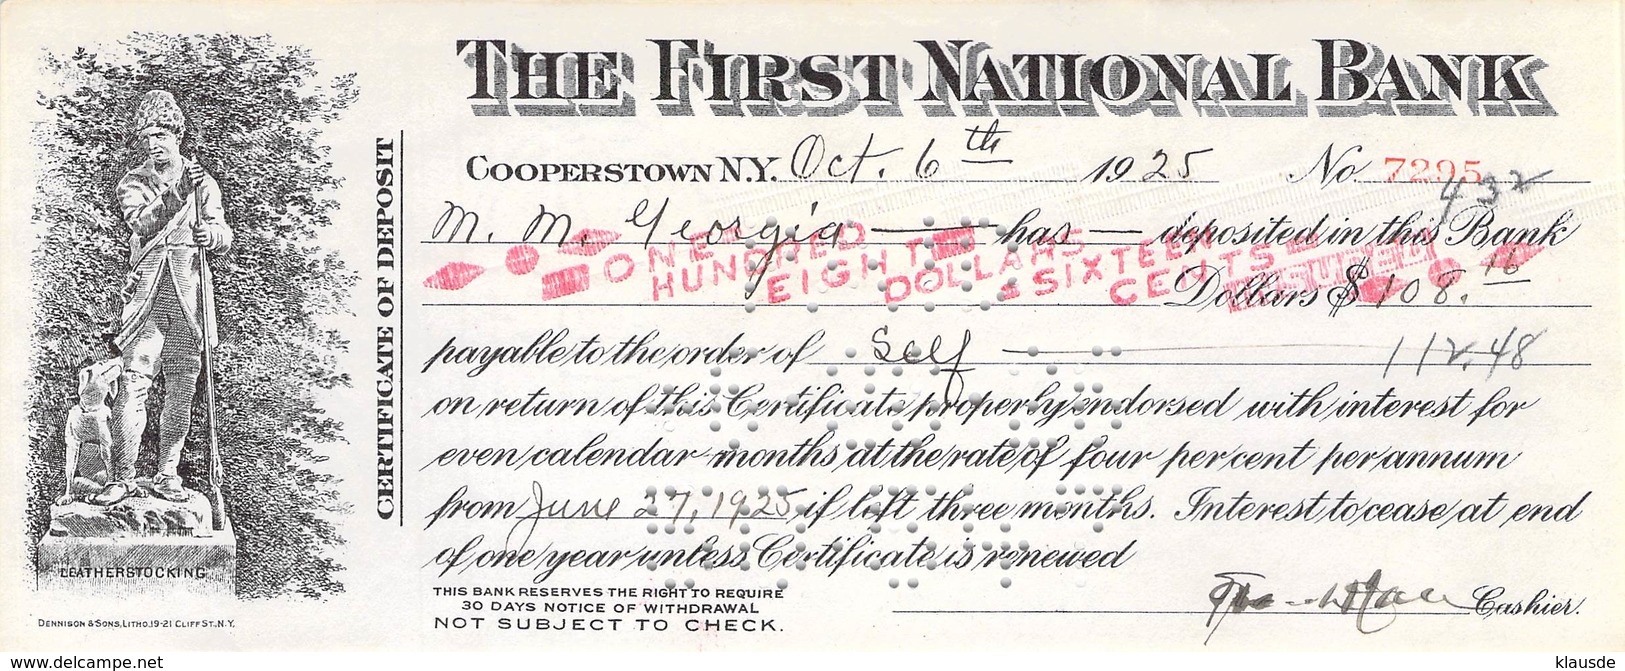 THE FIRST NATIONAL BANK
COOPERSTOWN N.Y. Oct. 6th 1925 No. 7295
432
M. M. Georgia has deposited in this Bank
ONE HUNDRED EIGHT DOLLARS & SIXTEEN CENTS
Dollars $ 108.16
payable to the order of Self 112.48
on return of this Certificate properly endorsed with interest for
even calendar months at the rate of four per cent per annum
from June 27, 1925 if left three months. Interest to cease at end
of one year unless Certificate is renewed
THIS BANK RESERVES THE RIGHT TO REQUIRE
30 DAYS NOTICE OF WITHDRAWAL
NOT SUBJECT TO CHECK.
Cashier.
CERTIFICATE OF DEPOSIT
LEATHERSTOCKING
DENNISON & SONS, LITHO, 19-21 CLIFF ST., N.Y.
www.delcampe.net
klausde